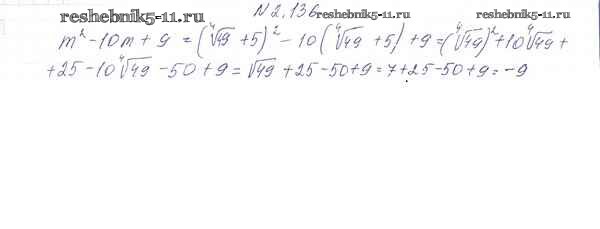 reshebnik5-11.ru N 2.136 reshebnik5-11.ru reshebnik5-11.ru
m² - 10m + 9 = (⁴√49 + 5)² - 10(⁴√49 + 5) + 9 = (⁴√49)² + 10⁴√49 +
+ 25 - 10⁴√49 - 50 + 9 = √49 + 25 - 50 + 9 = 7 + 25 - 50 + 9 = -9